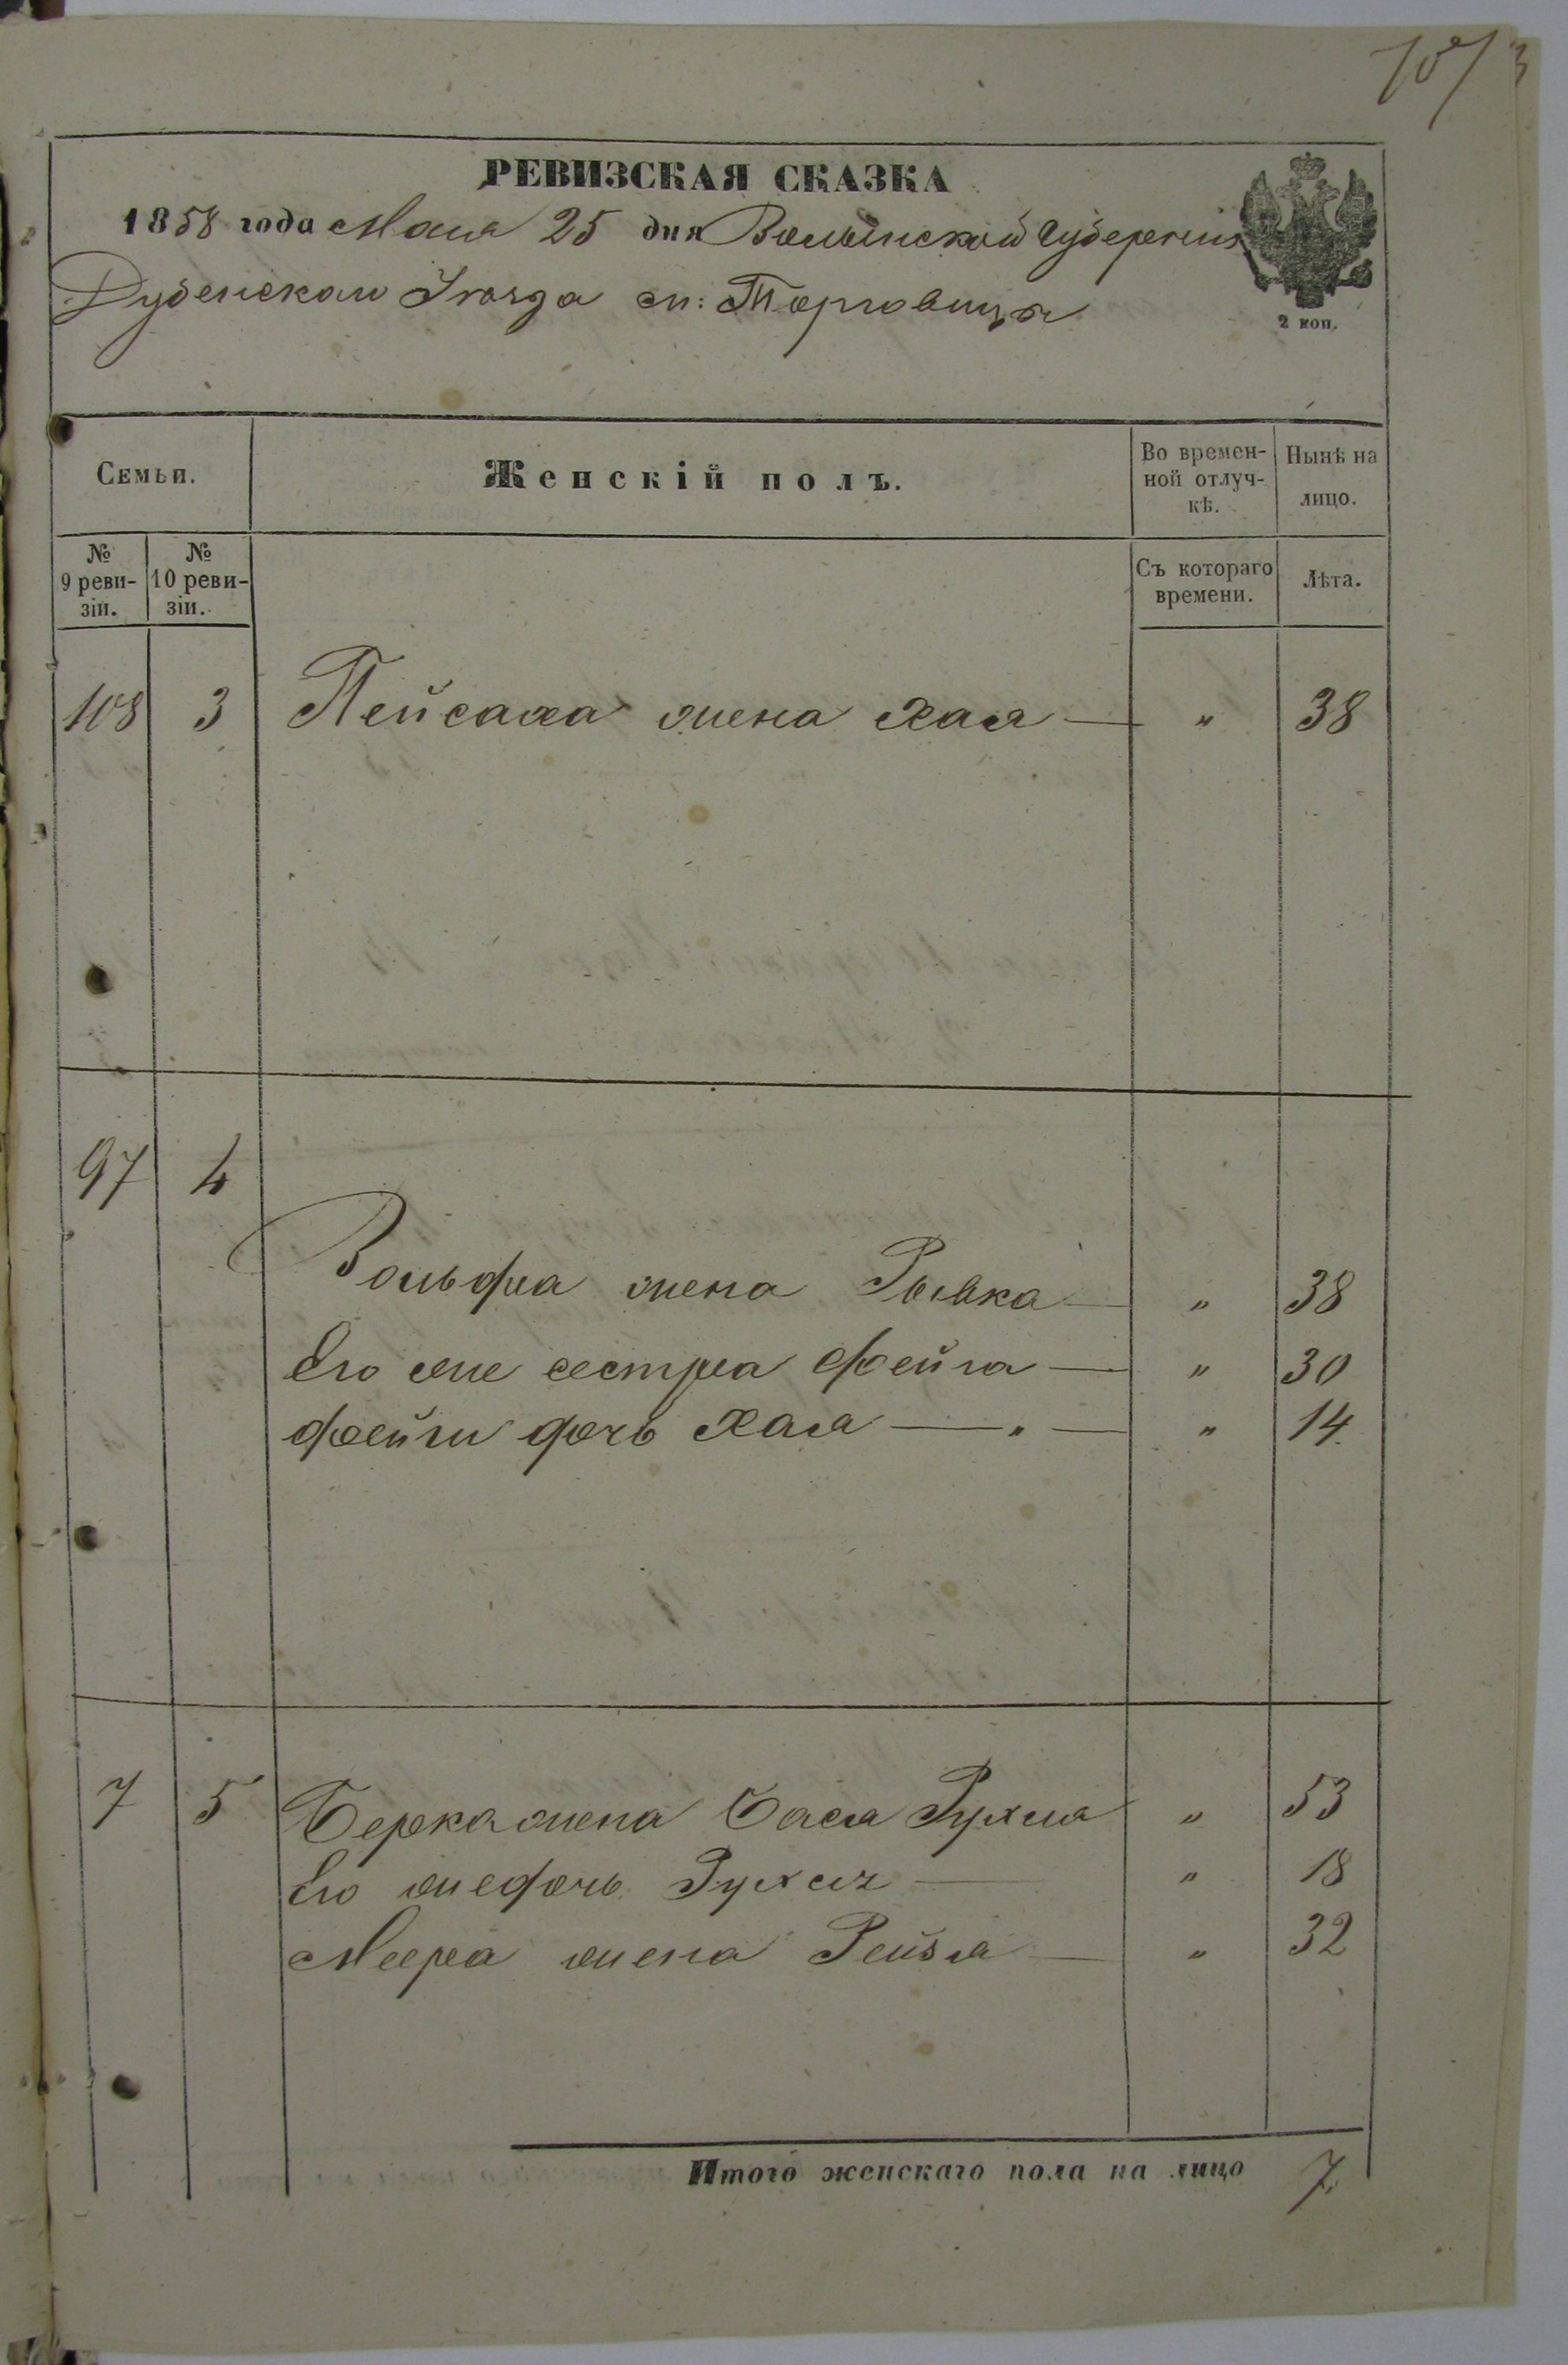 РЕВИЗСКАЯ СКАЗКА
1858 года Мая 25 дня Волынской Губернiи
Дубенскаго Уезда м: Торговица
2 коп.
Семьи.
Женскiй полъ.
Во времен-
ной отлуч-
кѣ.
Нынѣ на
лицо.
№
9 реви-
зiи.
№
10 реви-
зiи.
Съ котораго
времени.
Лѣта.
108 3 Пейсаха жена Хая — „ 38
97 4
Вольфа жена Рывка — „ 38
Его же сестра Фейга — „ 30
Фейги дочь Хая — „ 14
7 5 Берка жена Бася Рухля „ 53
Его же дочь Рухля — „ 18
Меера жена Рейзя — „ 32
Итого женскаго пола на лицо 7.